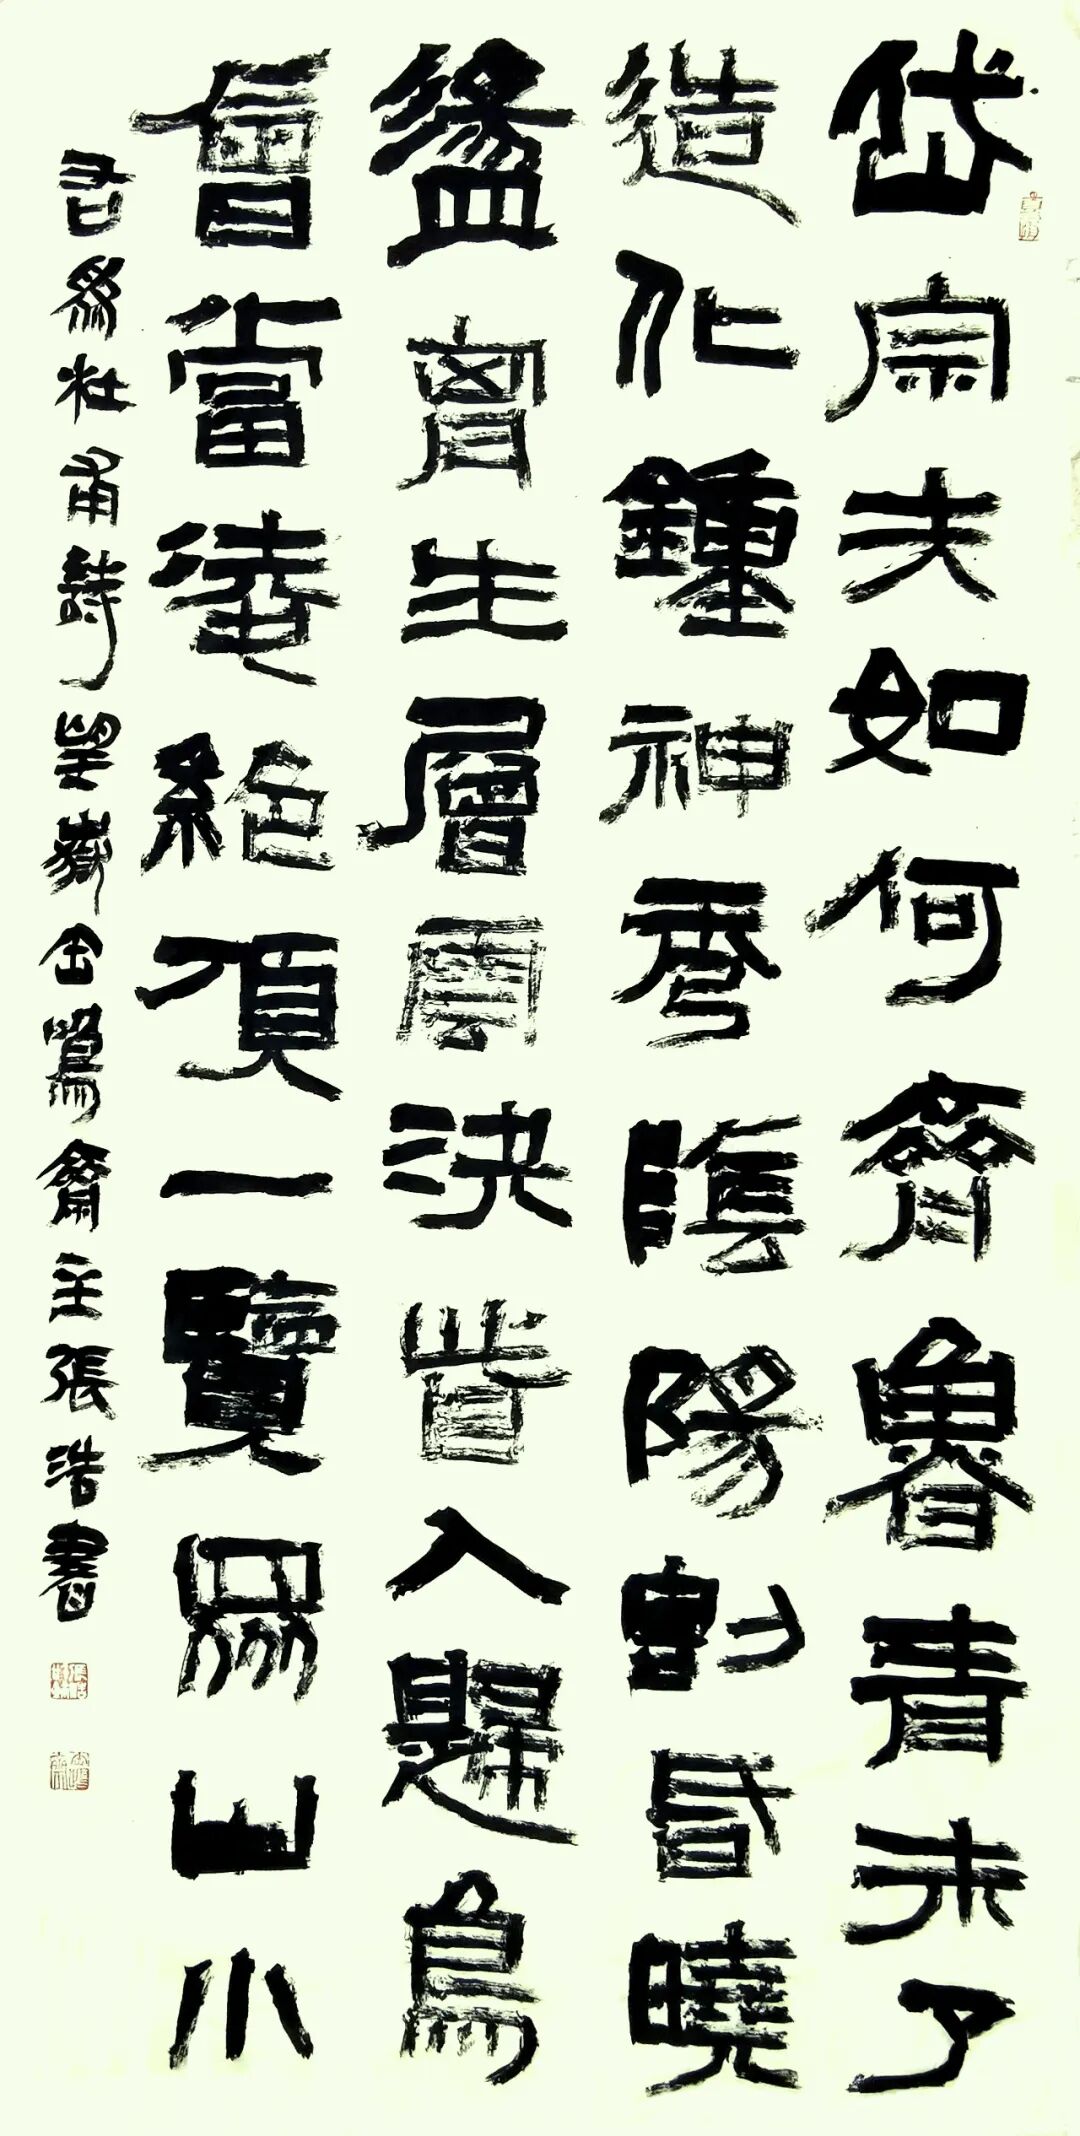 岱宗夫如何齊魯青未了
造化鍾神秀陰陽割昏曉
盪胷生層雲決眥入歸鳥
會當凌絕頂一覽眾山小
右為杜甫詩望嶽金齋主張浩書